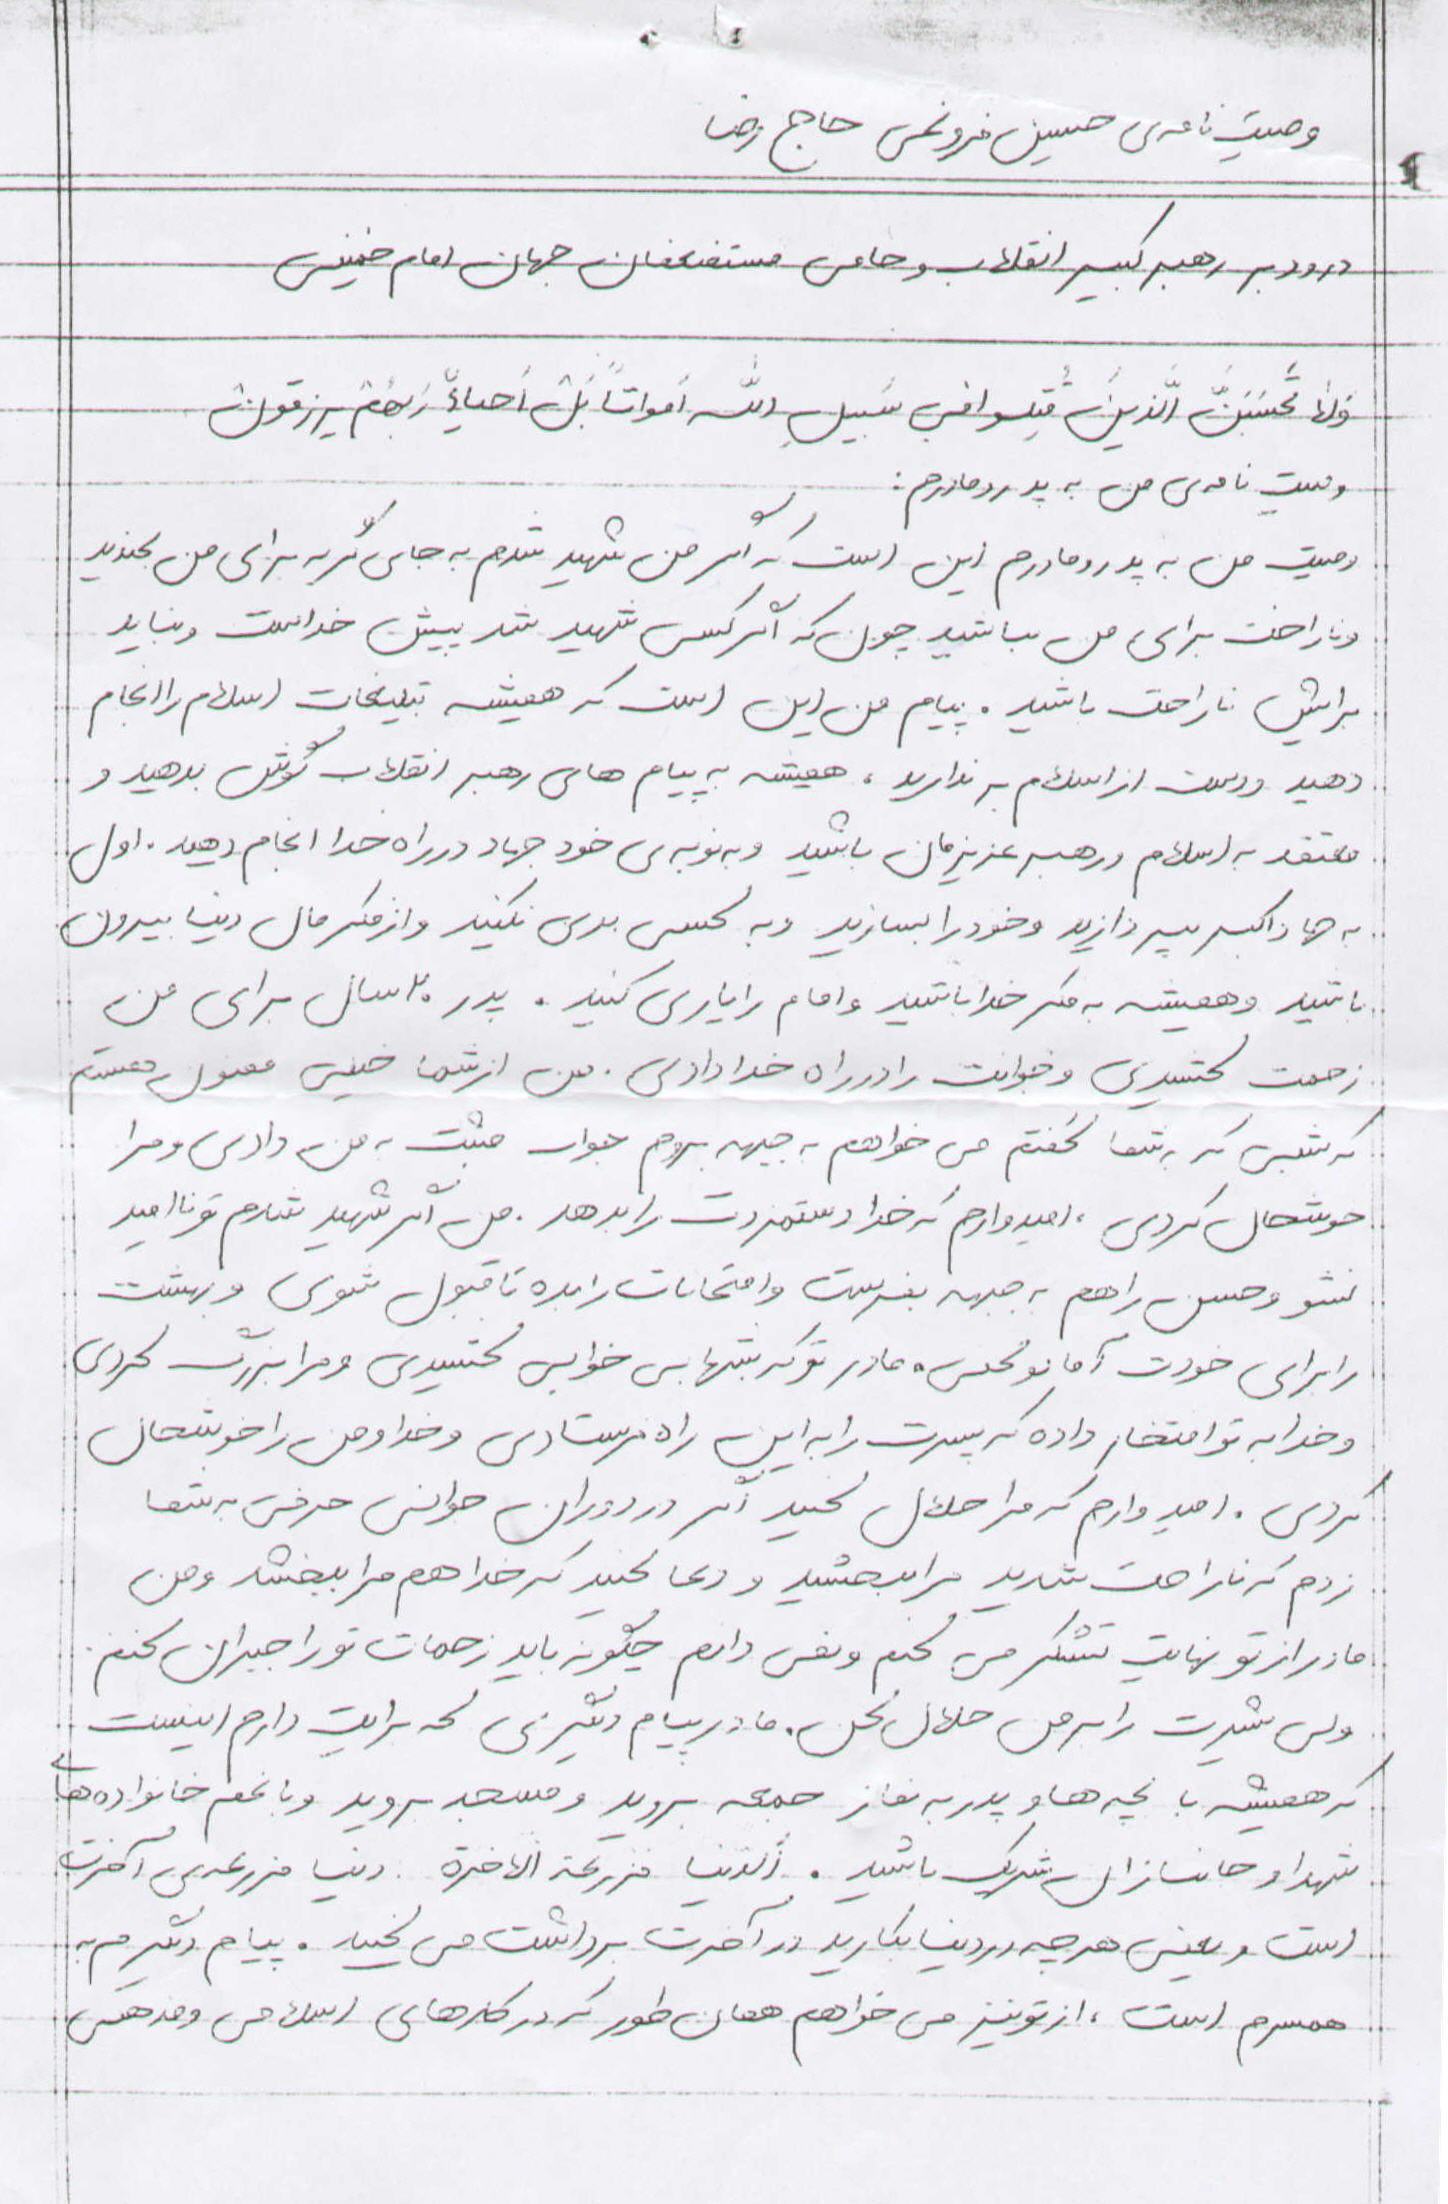 وصیت نامه‌ی حسین فرونچی حاج رضا
درود بر رهبر کبیر انقلاب و حامی مستضعفان جهان امام خمینی
وَلا تَحْسَبَنَّ اَلَّذینَ قُتِلوا فی سَبیلِ اللّه اَمواتاً بَلْ اَحیاءٌ رَبِهِّمْ یرزقون
وصیت نامه‌ی من به پدر و مادرم :
وصیت من به پدر و مادرم این است که اگر من شهید شدم به جای گریه برای من بخندید
و ناراحت برای من نباشید چون که اگر کسی شهید شد پیش خداست و نباید
برایش ناراحت باشید . پیام من این است که همیشه تبلیغات اسلام را انجام
دهید و دست از اسلام بر ندارید ، همیشه به پیام های رهبر انقلاب گوش بدهید و
معتقد به اسلام و رهبر عزیزمان باشید و به نوبه‌ی خود جهاد در راه خدا انجام دهید . اول
به جهاد اکبر بپردازید و خود را بسازید و به کسی بدی نکنید و از فکر مال دنیا بیرون
باشید و همیشه به فکر خدا باشید و امام را یاری کنید . پدر ۲۰ سال برای من
زحمت کشیدی و جوانت را در راه خدا دادی . من از شما خیلی ممنون هستم
که شبی که به شما گفتم می خواهم به جبهه بروم جواب مثبت به من دادی و مرا
خوشحال کردی ، امیدوارم که خدا دستمزدت را بدهد . من اگر شهید شدم تو ناامید
نشو و حسن را هم به جبهه بفرست و امتحانات را بده تا قبول شوی و بهشت
را برای خودت آماده کنی . مادر تو که شبها بی خوابی کشیدی و مرا بزرگ کردی
و خدا به تو افتخار داده که پسرت را به این راه فرستادی و خدا و من را خوشحال
کردی . امیدوارم که مرا حلال کنید اگر در دوران جوانی حرفی به شما
زدم که ناراحت شدید مرا ببخشید و دعا کنید که خدا هم مرا ببخشد و من
مادر از تو نهایت تشکر می کنم و نمی دانم چگونه باید زحمات تو را جبران کنم .
ولی شیرت را بر من حلال کن . مادر پیام دیگری که برایت دارم اینست
که همیشه با بچه ها و پدر به نماز جمعه بروید و مسجد بروید و با غم خانواده های
شهدا و جانبازان شریک باشید . اَلدنیا مزرعة الاخرة . دنیا مزرعه‌ی آخرت
است و یعنی هرچه در دنیا بکارید در آخرت برداشت می کنید . پیام دیگرم به
همسرم است ، از تو نیز می خواهم همان طور که در کارهای اسلامی و مذهبی